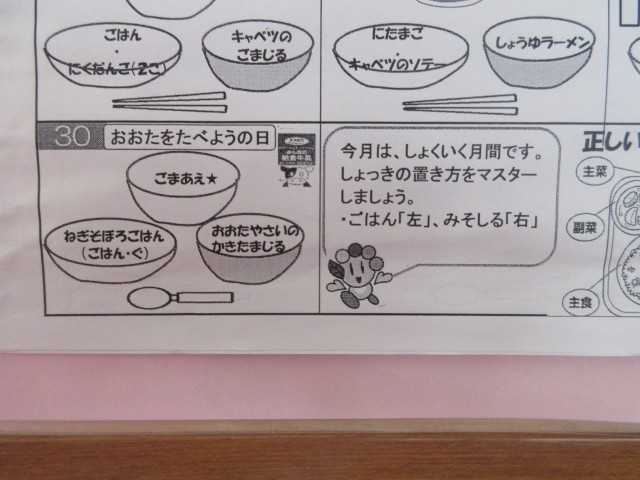 ごはん
・
にくだんご(2こ)
キャベツの
ごまじる
にたまご
・
キャベツのソテー
しょうゆラーメン
30 おおたをたべようの日
ごまあえ★
ねぎそぼろごはん
(ごはん・ぐ)
おおたやさいの
かきたまじる
今月は、しょくいく月間です。
しょっきの置き方をマスター
しましょう。
・ごはん「左」、みそしる「右」
正しい
主菜
副菜
主食